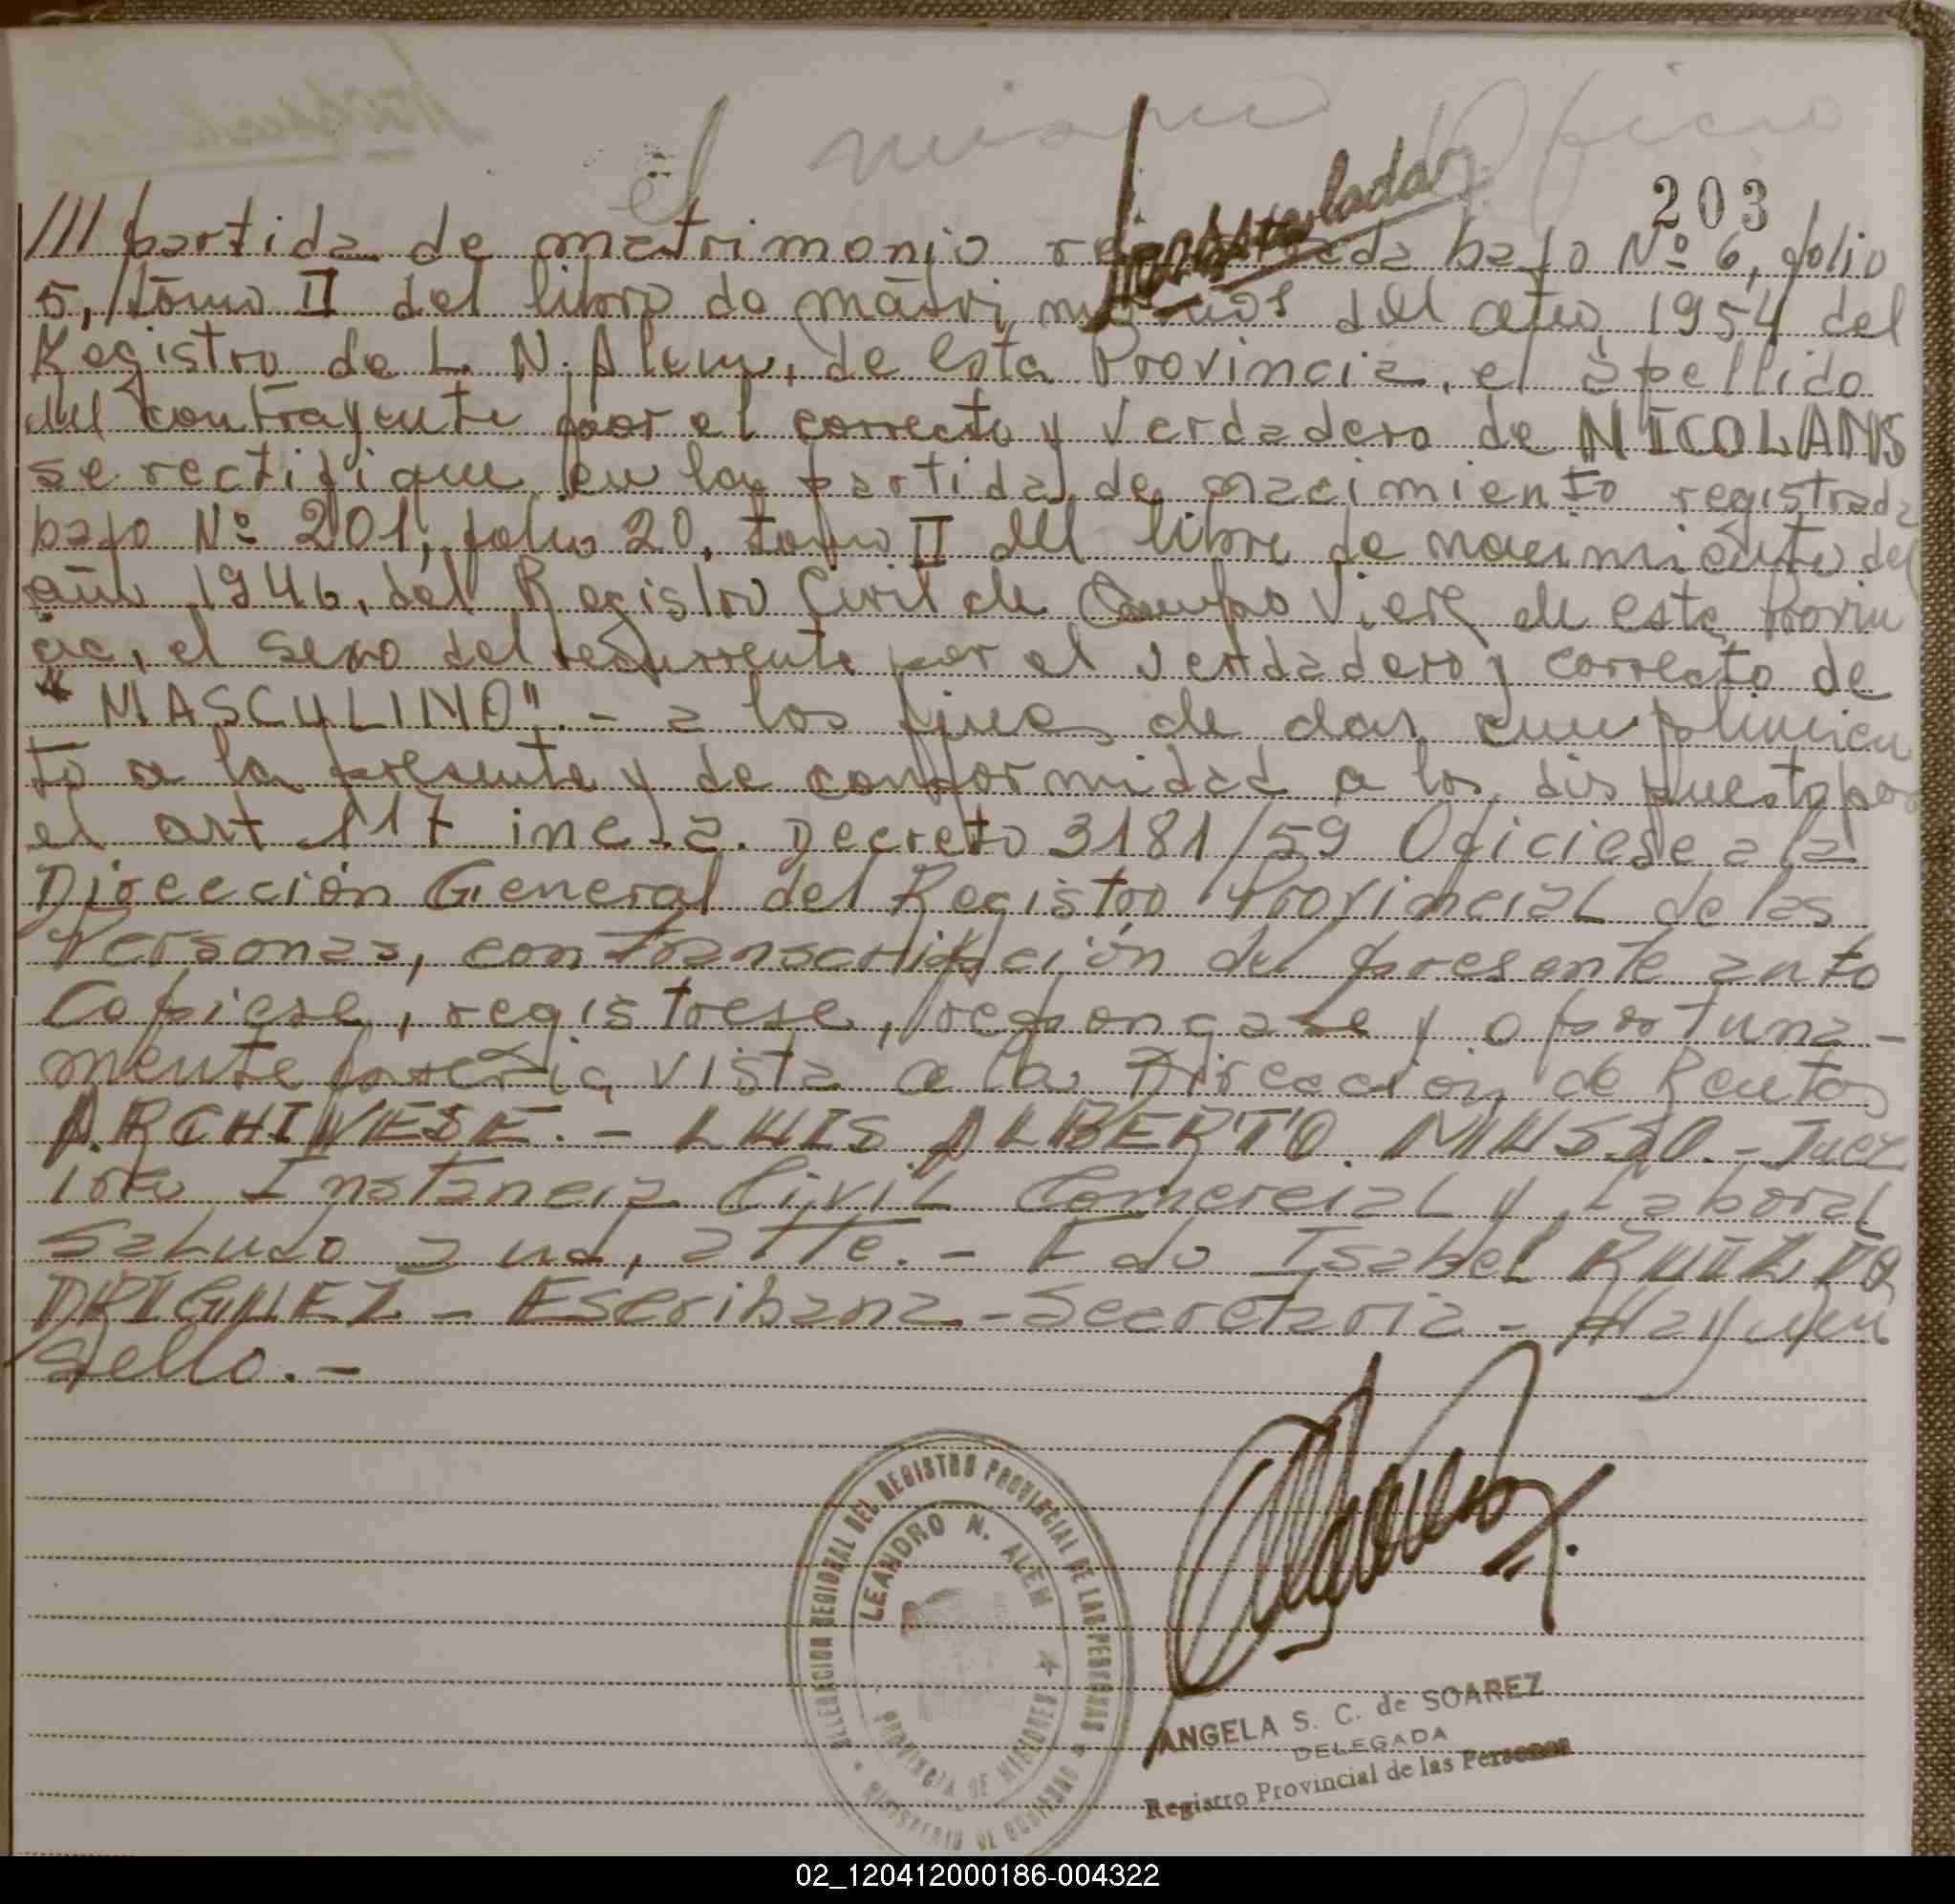 El mismo Oficio
Transcladar
203
/// partida de matrimonio bajo Nº 6, folio
5, Tomo II del libro de matrimonios del año 1954 del
Registro de L. N. Alem, de esta Provincia, el apellido
del contrayente por el correcto y verdadero de NICOLANS
se rectifique en la partida de nacimiento registrada
bajo Nº 201, folio 20, tomo II del libro de nacimiento del
año 1946, del Registro Civil de Campo Viera de esta Provin
cia, el sexo del recurrente por el verdadero y correcto de
"MASCULINO".- a los fines de dar cumplimien
to a la presente y de conformidad a los dispuesto por
el art 117 inc. a. Decreto 3181/59 Oficiese a la
Dirección General del Registro Provincial de las
Personas, con transcripción del presente auto
Copiese, registrese, repongase y oportuna-
mente vista a la Dirección de Rentas
ARCHIVESE.- LUIS ALBERTO MUSSO.- Juez
1ra Instancia Civil Comercial y Laboral
Saludo a ud, atte.- Fdo Isabel RUIZ RO
DRIGUEZ - Escribana - Secretaria - Hay un
sello.-
DELEGACION REGIONAL DEL REGISTRO PROVINCIAL DE LAS PERSONAS
LEANDRO N. ALEM
PROVINCIA DE MISIONES
MINISTERIO DE GOBIERNO
ANGELA S. C. de SOAREZ
DELEGADA
Registro Provincial de las Personas
02_120412000186-004322